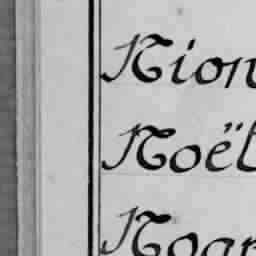 Nion
Noël
Noar